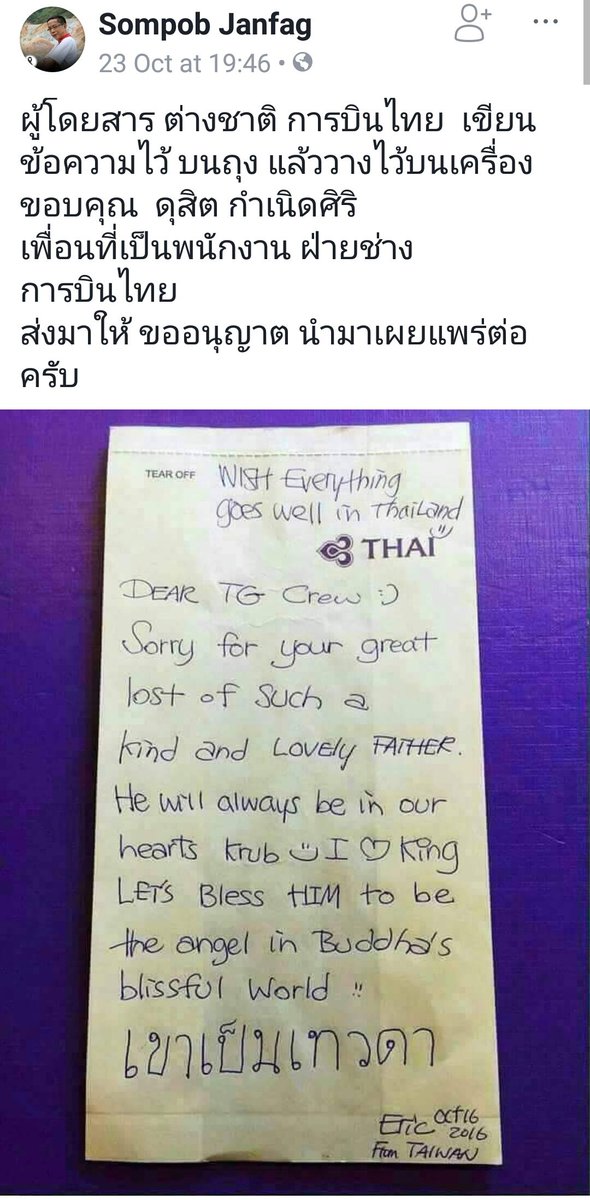 Sompob Janfag
23 Oct at 19:46 •
ผู้โดยสาร ต่างชาติ การบินไทย เขียน
ข้อความไว้ บนถุง แล้ววางไว้บนเครื่อง
ขอบคุณ ดุสิต กำเนิดศิริ
เพื่อนที่เป็นพนักงาน ฝ่ายช่าง
การบินไทย
ส่งมาให้ ขออนุญาต นำมาเผยแพร่ต่อ
ครับ
TEAR OFF
WISH Everything
goes well in Thailand
THAI
DEAR TG Crew :)
Sorry for your great
lost of such a
kind and LOVELY FATHER.
He will always be in our
hearts krub I ♡ King
LET'S Bless HIM to be
the angel in Buddha's
blissful World !!
เขาเป็นเทวดา
Eric Oct 16
2016
From TAIWAN